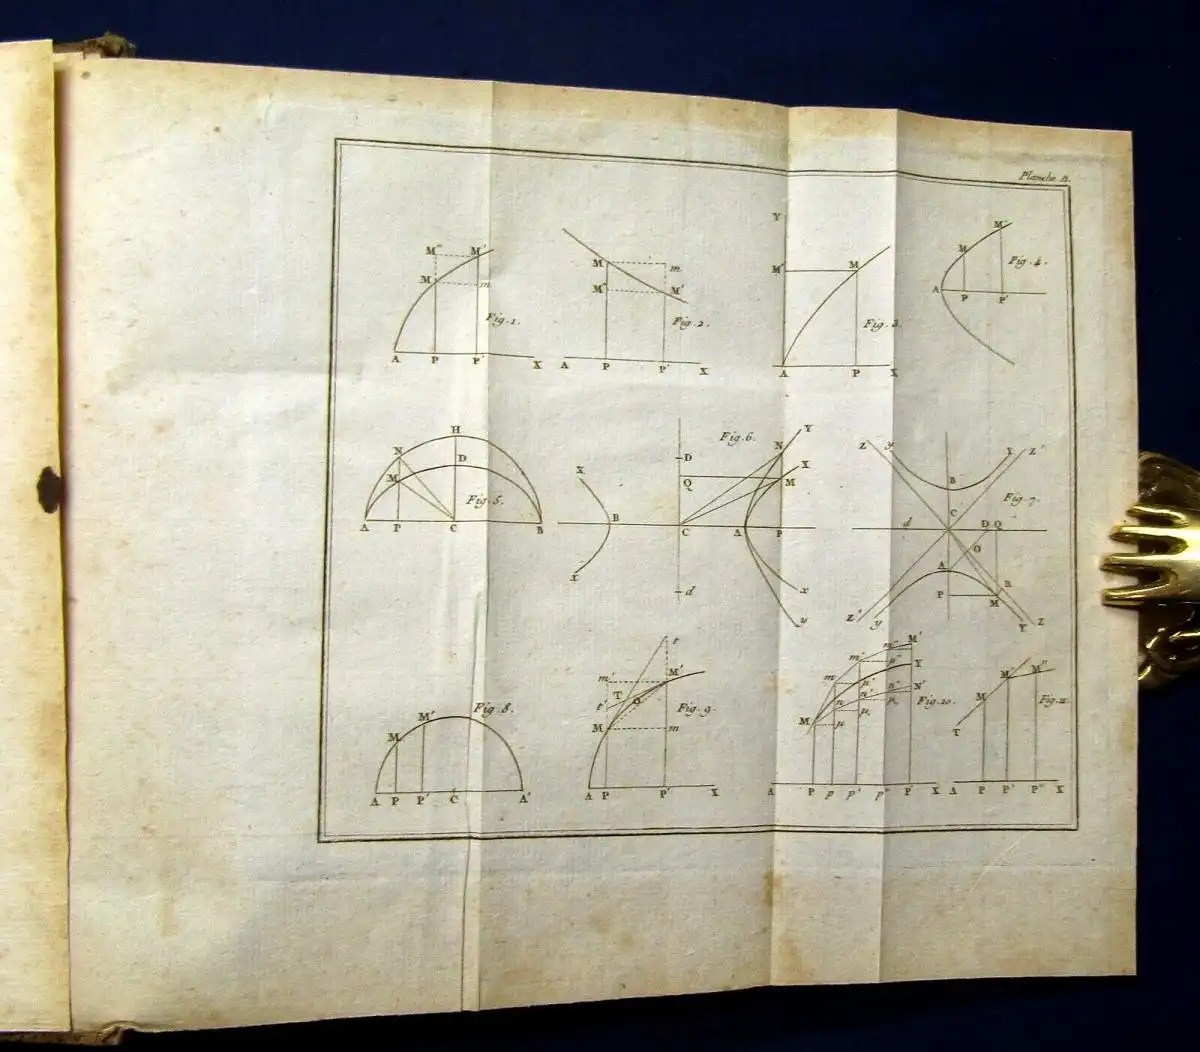 Planche II.
M" M'
M m
Fig. 1.
A P P' X
M m
M" M'
Fig. 2.
A P P' X
Y
M' M
Fig. 3.
A P X
M'
M
Fig. 4.
A P P'
H
N D
M
Fig. 5.
A P C B
Fig. 6.
D N Y
X X
Q M
B C A P
x d x
y
Z y Y Z'
B
Fig. 7.
C
d D Q
O
A
P R
M
Z' y Y Z
Fig. 8.
M M'
A P P' C A'
t
m M'
T
t' O
Fig. 9.
M m
A P P' X
M'
m" m"
Y
m μ' μ"
n" N'
n n'
Fig. 10.
M μ μ, μ,
A P p p' p" P' X
M' M"
M
Fig. 11.
T
A P P' P" X